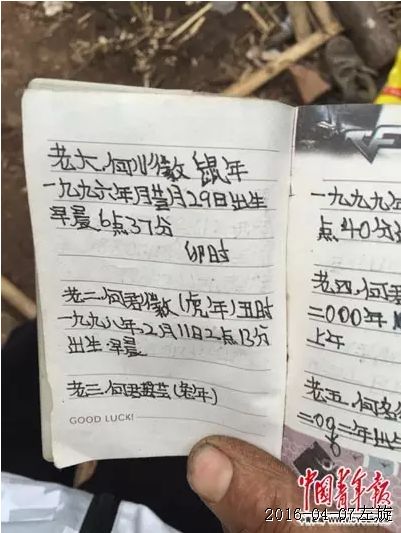 老大.何川徽 鼠年
一九九六年月29日出生
早晨6点37分
卯时
老二.何君徽(虎年)丑时
一九九八年2月11日2点13分
出生.早晨
老三.何君(年)
GOOD LUCK!
一九九九年
点40分
老四.何君
二000年
上午
老五.何
二00二年出生
中国青年报
2016-04-07左旋